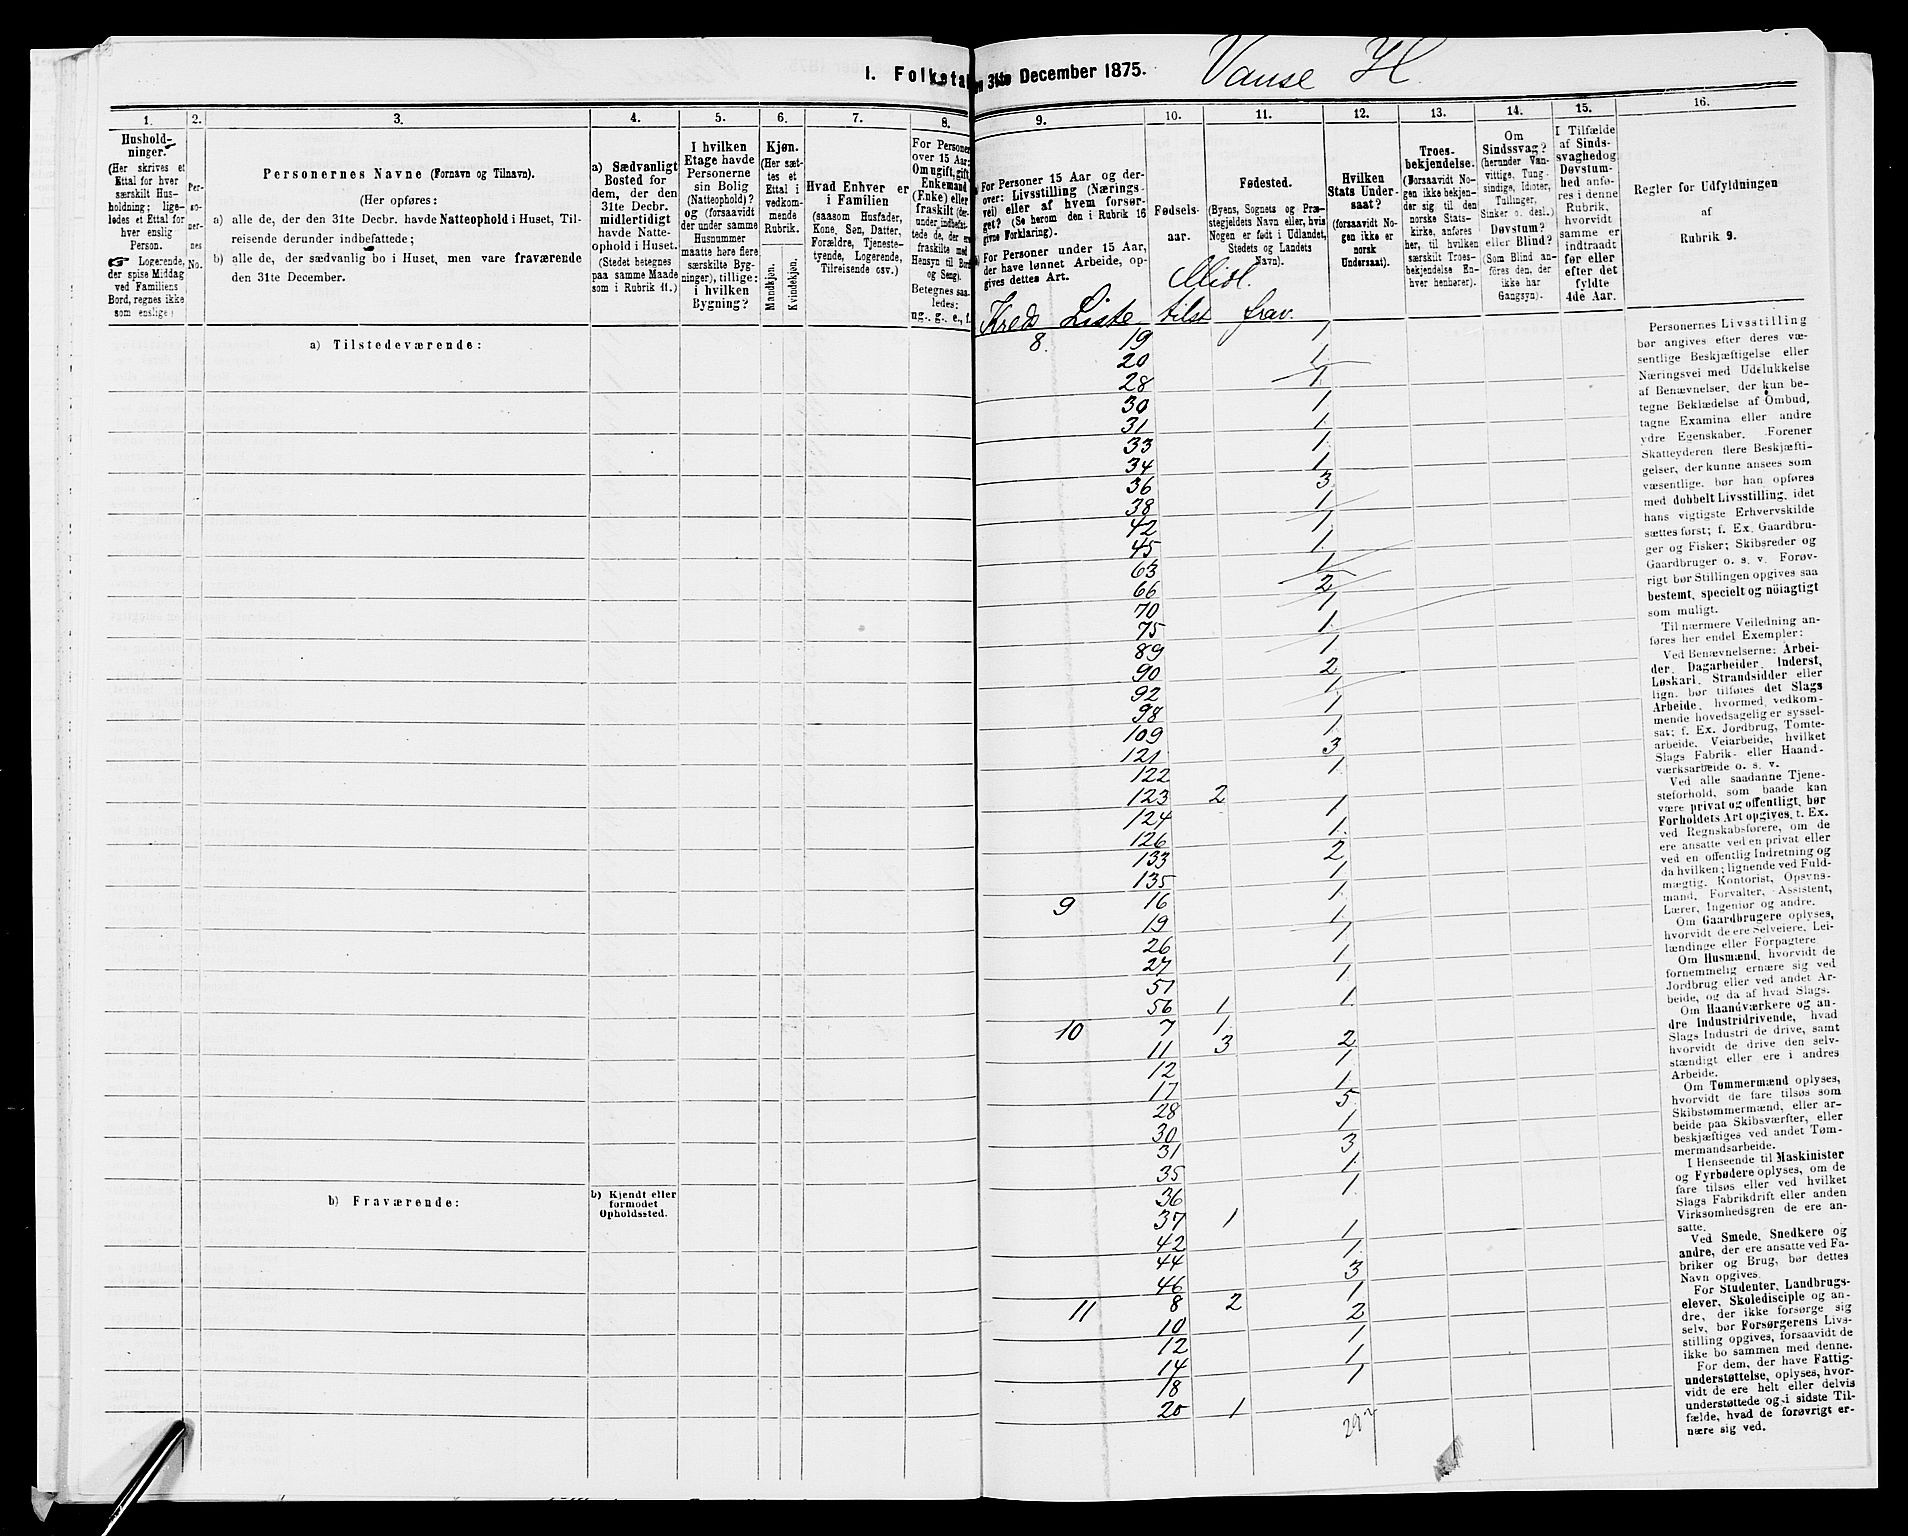 I. Folketal
den 31te December 1875.
Vanse H.
1.
Hushold-
ninger.
(Her skrives et
Ettal for hver
særskilt Hus-
holdning; lige-
ledes et Ettal for
hver enslig
Person.
☞ Logerende,
der spise Middag
ved Familiens
Bord, regnes ikke
som enslige)
2.
Per-
so-
ner-
nes
No.
3.
Personernes Navne (Fornavn og Tilnavn).
(Her opføres:
a) alle de, der den 31te Decbr. havde Natteophold i Huset, Til-
reisende derunder indbefattede;
b) alle de, der sædvanlig bo i Huset, men vare fraværende
den 31te December.
4.
a) Sædvanligt
Bosted for
dem, der den
31te Decbr.
midlertidigt
havde Natte-
ophold i Huset.
(Stedet betegnes
paa samme Maade
som i Rubrik 11.)
5.
I hvilken
Etage havde
Personerne
sin Bolig
(Natteophold)?
og (forsaavidt
der under samme
Husnummer
maatte høre flere
særskilte Byg-
ninger), tillige:
i hvilken
Bygning?
6.
Kjøn.
(Her sæt-
tes et
Ettal i
vedkom-
mende
Rubrik.
Mandkjøn.
Kvindekjøn.
7.
Hvad Enhver er
i Familien
(saasom Husfader,
Kone, Søn, Datter,
Forældre, Tjeneste-
tyende, Logerende,
Tilreisende osv.)
8.
For Personer
over 15 Aar:
Om ugift, gift,
Enkemand
(Enke) eller
fraskilt (der-
under indbefat-
tede de, der ere
fraskilte med
Hensyn til Bord
og Seng).
Betegnes saa-
ledes:
ug., g., e., f.
9.
a) For Personer 15 Aar og der-
over: Livsstilling (Nærings-
vei) eller af hvem forsør-
get? (Se herom den i Rubrik 16
givne Forklaring).
b) For Personer under 15 Aar,
der have lønnet Arbeide, op-
gives dettes Art.
10.
Fødsels-
aar.
11.
Fødested.
(Byens, Sognets og Præ-
stegjeldets Navn eller, hvis
Nogen er født i Udlandet,
Stedets og Landets
Navn).
12.
Hvilken
Stats Under-
saat?
(forsaavidt No-
gen ikke er
norsk
Undersaat).
13.
Troes-
bekjendelse.
(Forsaavidt No-
gen ikke bekjen-
der sig til den
norske Stats-
kirke, anføres
her, til hvilken
særskilt Troes-
bekjendelse En-
hver henhører).
14.
Om
Sindssvag?
(herunder Van-
vittige, Tung-
sindige, Idioter,
Tullinger,
Sinker o. desl.)
Døvstum?
eller Blind?
(Som Blind an-
føres den, der
ikke har
Gangsyn).
15.
I Tilfælde
af Sinds-
svaghed og
Døvstum-
hed anfø-
res i denne
Rubrik,
hvorvidt
samme er
indtraadt
før eller
efter det
fyldte
4de Aar.
16.
Regler for Udfyldningen
af
Rubrik 9.
Midl.
Kreds Liste tilst frav.
a) Tilstedeværende:
8. 19 1
20 1
28 1
30 1
31 1
33 1
34 1
36 3
38 1
42 1
45 1
63 1
66 2
70 1
75 1
89 1
90 2
92 1
98 1
109 1
121 3
122 1
123 2
124 1
126 1
133 2
135 1
9 16 1
19 1
26 1
27 1
51 1
56 1 1
10 7 1
11 3 2
12 1
17 1
28 5
30 1
31 3
35 1
36 1
37 1
42 1
44 1
46 3
11 8 2 1
10 2
12 1
14 1
18 1
20 1
b) Fraværende:
b) Kjendt eller
formodet
Opholdssted.
Personernes Livsstilling
bør angives efter deres væ-
sentlige Beskjæftigelse eller
Næringsvei med Udelukkelse
af Benævnelser, der kun be-
tegne Beklædelse af Ombud,
tagne Examina eller andre
ydre Egenskaber. Forener
Skatteyderen flere Beskjæfti-
gelser, der kunne ansees som
væsentlige, bør han opføres
med dobbelt Livsstilling, idet
hans vigtigste Erhvervskilde
sættes først; f. Ex. Gaardbru-
ger og Fisker; Skibsreder og
Gaardbruger o. s. v. Forøv-
rigt bør Stillingen opgives saa
bestemt, specielt og nöiagtigt
som muligt.
Til nærmere Veiledning an-
føres her endel Exempler:
Ved Benævnelserne: Arbei-
der, Dagarbeider, Inderst,
Løskarl, Strandsidder eller
lign. bør tilføies det Slags
Arbeide, hvormed vedkom-
mende hovedsagelig er syssel-
sat; f. Ex. Jordbrug, Tomte-
arbeide, Veiarbeide, hvilket
Slags Fabrik- eller Haand-
værksarbeide o. s. v.
Ved alle saadanne Tjene-
steforhold, som baade kan
være privat og offentligt, bør
Forholdets Art opgives, t. Ex.
ved Regnskabsførere, om de
ere ansatte ved en privat eller
ved en offentlig Indretning og
da hvilken; lignende ved Fuld-
mægtig, Kontorist, Opsyns-
mand, Forvalter, Assistent,
Lærer, Ingeniør og andre.
Om Gaardbrugere oplyses,
hvorvidt de ere Selveiere, Lei-
lændinge eller Forpagtere
Om Husmænd, hvorvidt de
fornemmelig ernære sig ved
Jordbrug eller ved andet Ar-
beide, og da af hvad Slags.
Om Haandværkere og an-
dre Industridrivende, hvad
Slags Industri de drive, samt
hvorvidt de drive den selv-
stændigt eller ere i andres
Arbeide.
Om Tømmermænd oplyses,
hvorvidt de fare tilsøs som
Skibstømmermænd, eller ar-
beide paa Skibsværfter, eller
beskjæftiges ved andet Tøm-
mermandsarbeide.
I Henseende til Maskinister
og Fyrbødere oplyses, om de
fare tilsøs eller ved hvilket
Slags Fabrikdrift eller anden
Virksomhedsgren de ere an-
satte.
Ved Smede, Snedkere og
andre, der ere ansatte ved Fa-
briker og Brug, bør dettes
Navn opgives.
For Studenter, Landbrugs-
elever, Skoledisciple og an-
dre, der ikke forsørge sig
selv, bør Forsørgerens Livs-
stilling opgives, forsaavidt de
ikke bo sammen med denne.
For dem, der have Fattig-
understøttelse, oplyses, hvor-
vidt de ere helt eller delvis
understøttede og i sidste Til-
fælde, hvad de forøvrigt er-
nære sig ved.